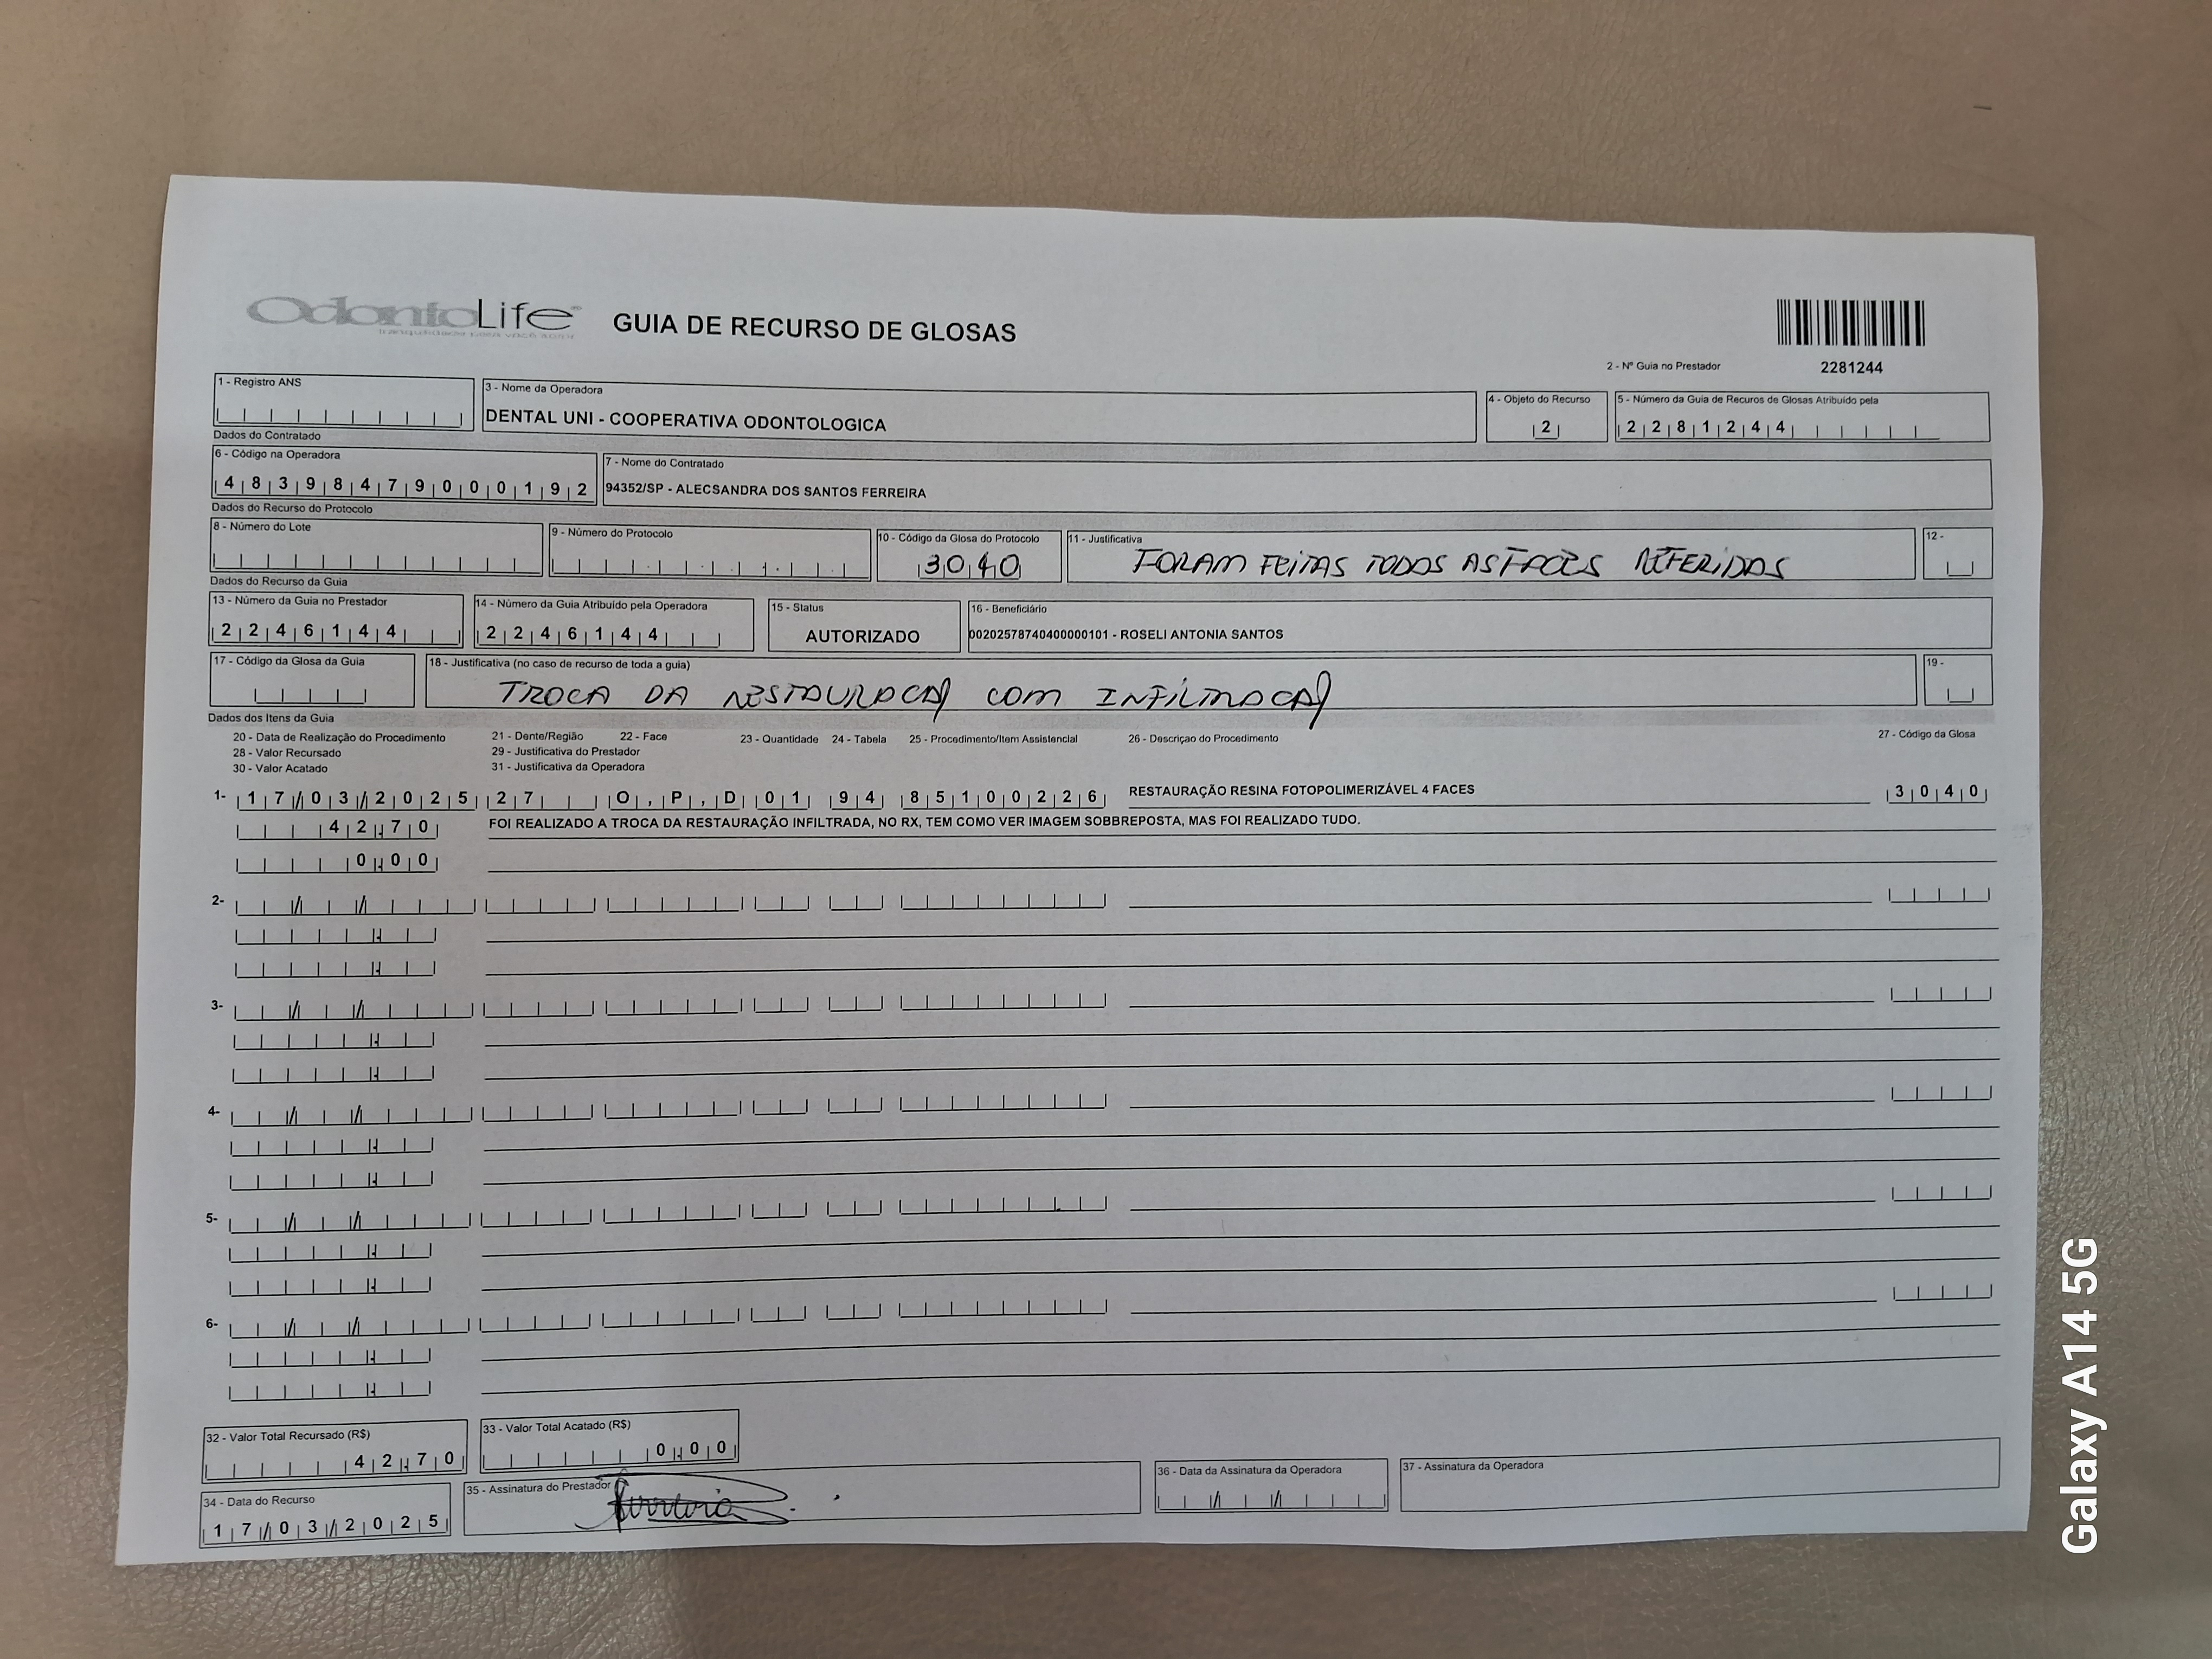 OdontoLife
GUIA DE RECURSO DE GLOSAS
2 - Nº Guia no Prestador 2281244
1 - Registro ANS
3 - Nome da Operadora
DENTAL UNI - COOPERATIVA ODONTOLOGICA
4 - Objeto do Recurso
2
5 - Número da Guia de Recuros de Glosas Atribuído pela
2281244
Dados do Contratado
6 - Código na Operadora
48398479000192
7 - Nome do Contratado
94352/SP - ALECSANDRA DOS SANTOS FERREIRA
Dados do Recurso do Protocolo
8 - Número do Lote
9 - Número do Protocolo
10 - Código da Glosa do Protocolo
3040
11 - Justificativa
FORAM FEITAS TODOS AS FACES REFERIDAS
12 -
Dados do Recurso da Guia
13 - Número da Guia no Prestador
2246144
14 - Número da Guia Atribuido pela Operadora
2246144
15 - Status
AUTORIZADO
16 - Beneficiário
00202578740400000101 - ROSELI ANTONIA SANTOS
17 - Código da Glosa da Guia
18 - Justificativa (no caso de recurso de toda a guia)
TROCA DA RESTAURACAO COM INFILTRACAO
19 -
Dados dos Itens da Guia
20 - Data de Realização do Procedimento 21 - Dente/Região 22 - Face 23 - Quantidade 24 - Tabela 25 - Procedimento/Item Assistencial 26 - Descriçao do Procedimento 27 - Código da Glosa
28 - Valor Recursado 29 - Justificativa do Prestador
30 - Valor Acatado 31 - Justificativa da Operadora
1- 17/03/2025 27 O,P,D 01 94 85100226 RESTAURAÇÃO RESINA FOTOPOLIMERIZÁVEL 4 FACES 3040
42,70 FOI REALIZADO A TROCA DA RESTAURAÇÃO INFILTRADA, NO RX, TEM COMO VER IMAGEM SOBBREPOSTA, MAS FOI REALIZADO TUDO.
0,00
2-
3-
4-
5-
6-
32 - Valor Total Recursado (R$)
42,70
33 - Valor Total Acatado (R$)
0,00
34 - Data do Recurso
17/03/2025
35 - Assinatura do Prestador
36 - Data da Assinatura da Operadora
37 - Assinatura da Operadora
Galaxy A14 5G